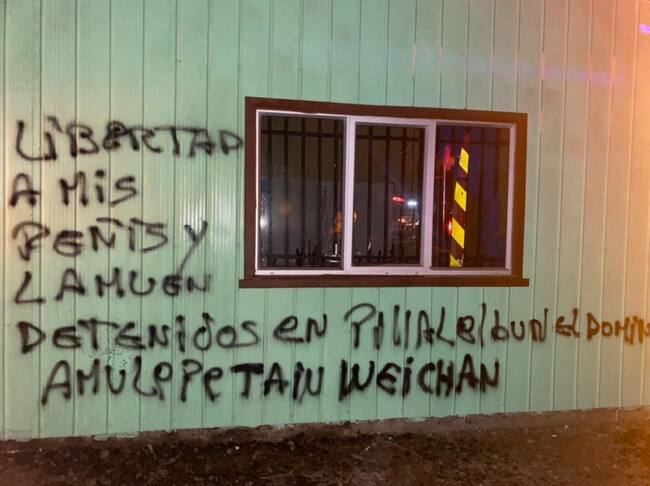 LiBERTAD
A Mis
PEÑiS y
LAMUEN
DETENiDOS eN PillALElbuN EL DOMiN
AMULEPE TAiN WEiCHAN